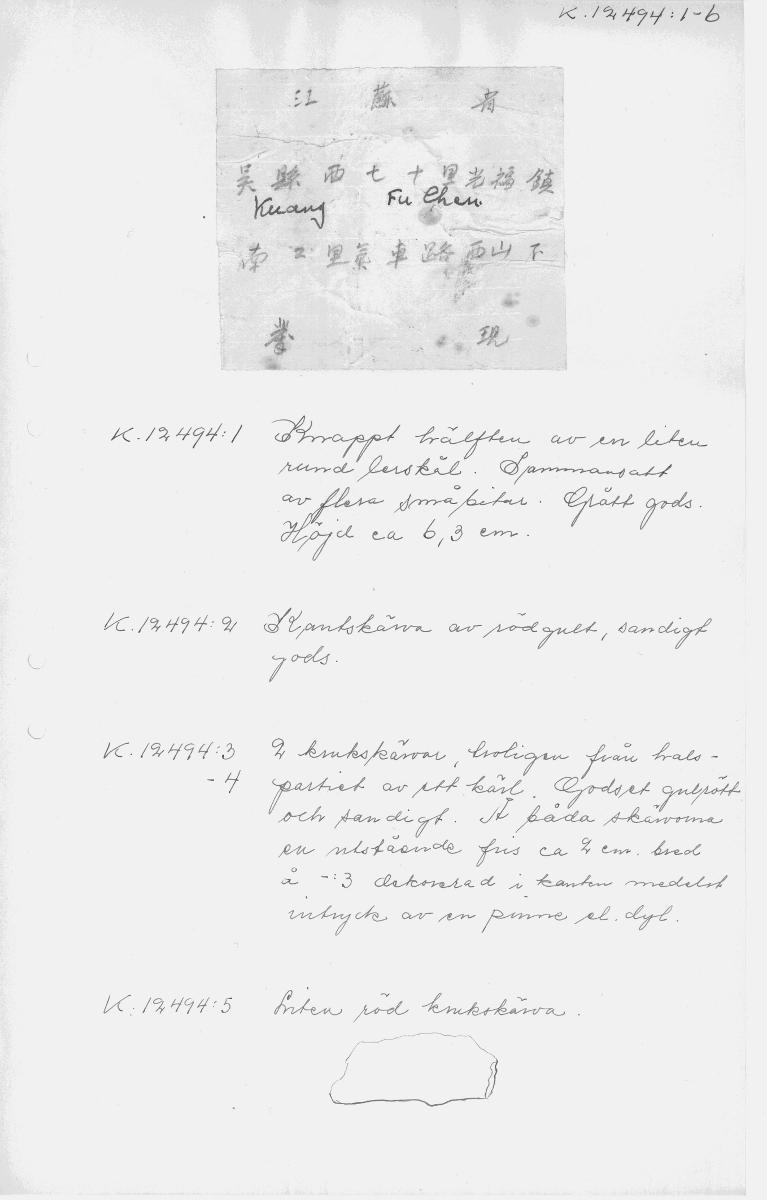 K.12494:1-6
江 蘇 省
吳 縣 西 七 十 里 光 福 鎮
Kuang Fu Chen
南 二 里 氣 車 路 西 山 下
現
K.12494:1 Knappt hälften av en liten
rund lerskål. Sammansatt
av flera småbitar. Grått gods.
Höjd ca 6,3 cm.
K.12494:2 Kantskärva av rödgult, sandigt
gods.
K.12494:3 2 krukskärvor, troligen från hals-
-4 partiet av ett kärl. Godset gulrött
och sandigt. Å båda skärvorna
en utstående fris ca 2 cm. bred
å -:3 dekorerad i kanten medelst
intryck av en pinne el. dyl.
K.12494:5 Liten röd krukskärva.